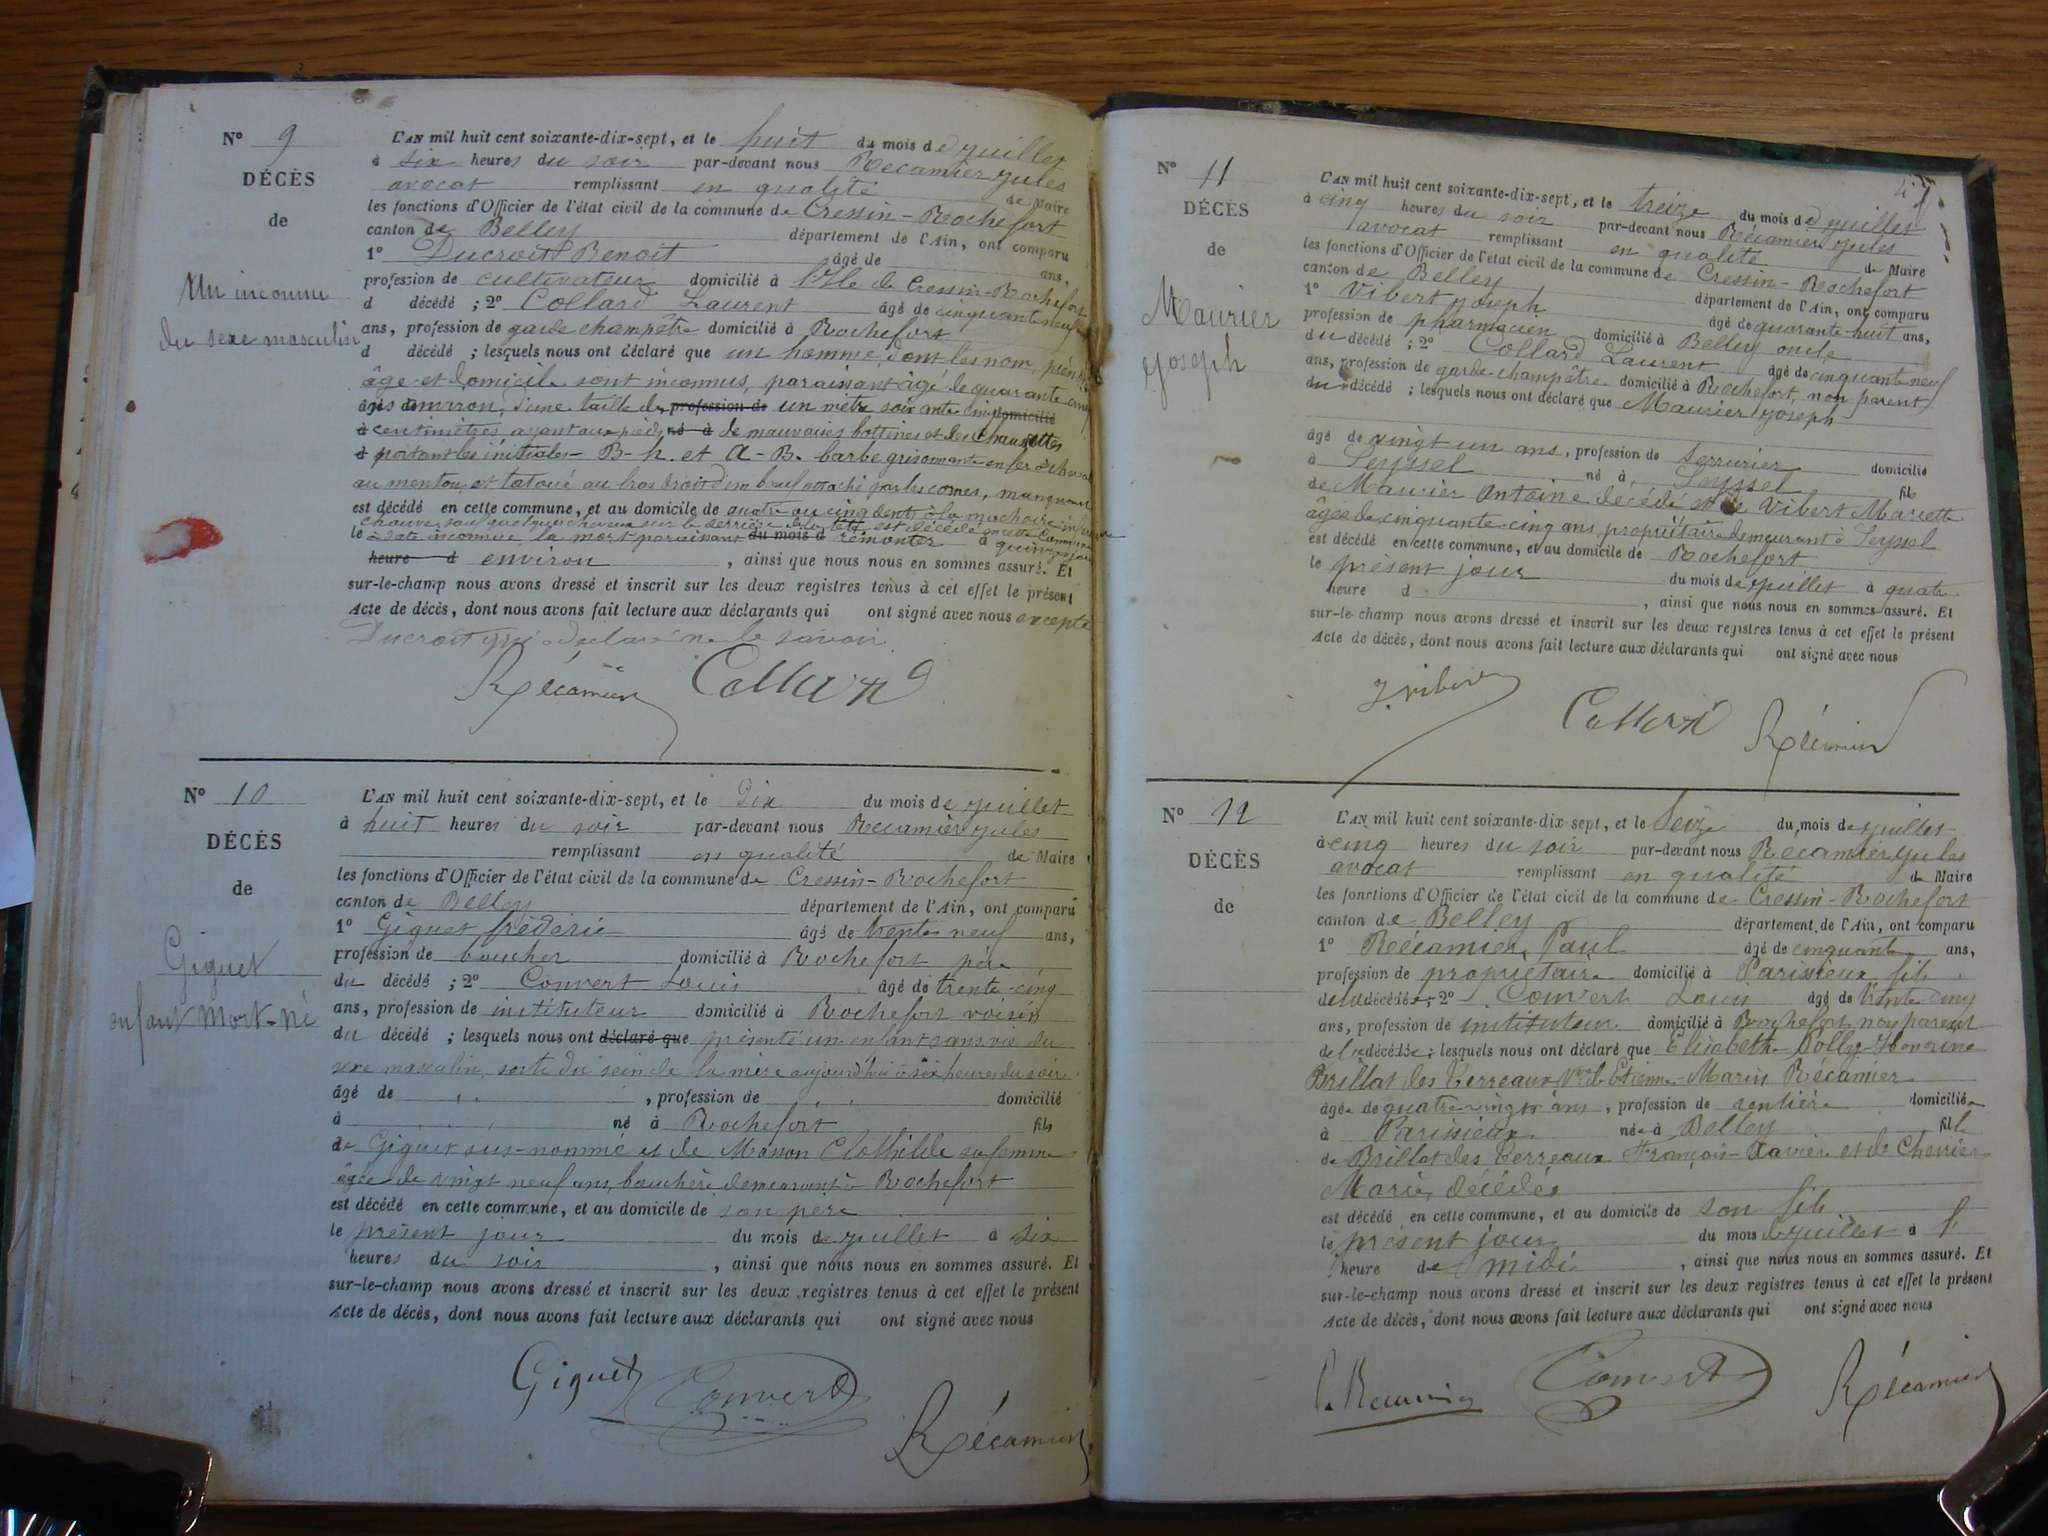 N° 9
DÉCÈS
de
Un inconnu
du sexe masculin
L'AN mil huit cent soixante-dix-sept, et le huit du mois de juillet
à six heures du soir par-devant nous Recamier Jules
avocat remplissant en qualité de Maire
les fonctions d'Officier de l'état civil de la commune de Cressin-Rochefort
canton de Belley département de l'Ain, ont comparu
1° Ducroit Benoit âgé de ans,
profession de cultivateur domicilié à l'Isle de Cressin-Rochefort
d décédé ; 2° Collard Laurent âgé de cinquante neuf
ans, profession de garde champêtre domicilié à Rochefort
d décédé ; lesquels nous ont déclaré que un homme dont les nom, prénoms
âge et domicile sont inconnus, paraissant âgé de quarante cinq
ans environ, d'une taille de profession de un mètre soixante cinq domicilié
à centimètres ayant aux pieds né à de mauvaises bottines et des chaussettes
portant les initiales B-h. et A-B. barbe grisonnante en fer à cheval
au menton et tatoué au bras droit d'un bœuf attaché par les cornes, manquant
est décédé en cette commune, et au domicile de quatre ou cinq dents à la machoire inférieure
chauve, sauf quelques cheveux sur le derrière de la tête, est décédé en cette commune
le à date inconnue la mort paraissant du mois d remonter à quinze jours
heure d environ , ainsi que nous nous en sommes assuré. Et
sur-le-champ nous avons dressé et inscrit sur les deux registres tenus à cet effet le présent
Acte de décès, dont nous avons fait lecture aux déclarants qui ont signé avec nous excepté
Ducroit qui a déclaré ne le savoir.
Récamier Collard
N° 10
DÉCÈS
de
Giguet
enfant Mort-né
L'AN mil huit cent soixante-dix-sept, et le Dix du mois de juillet
à huit heures du soir par-devant nous Recamier Jules
remplissant en qualité de Maire
les fonctions d'Officier de l'état civil de la commune de Cressin-Rochefort
canton de Belley département de l'Ain, ont comparu
1° Giguet frédéric âgé de trente neuf ans,
profession de boucher domicilié à Rochefort père
du décédé ; 2° Convert Louis âgé de trente-cinq
ans, profession de instituteur domicilié à Rochefort voisin
du décédé ; lesquels nous ont déclaré que présenté un enfant sans vie du
sexe masculin, sorti du sein de la mère aujourd'hui à six heures du soir
âgé de , profession de domicilié
à né à Rochefort fils
de Giguet sus-nommé et de Masson Clothilde sa femme
âgée de vingt neuf ans, bouchère demeurant à Rochefort
est décédé en cette commune, et au domicile de son père
le présent jour du mois de juillet à six
heures du soir , ainsi que nous nous en sommes assuré. Et
sur-le-champ nous avons dressé et inscrit sur les deux registres tenus à cet effet le présent
Acte de décès, dont nous avons fait lecture aux déclarants qui ont signé avec nous
Giguet Convert Récamier
47
N° 11
DÉCÈS
de
Maurier
Joseph
L'AN mil huit cent soixante-dix-sept, et le treize du mois de juillet
à cinq heures du soir par-devant nous Récamier Jules
avocat remplissant en qualité de Maire
les fonctions d'Officier de l'état civil de la commune de Cressin-Rochefort
canton de Belley département de l'Ain, ont comparu
1° Vibert Joseph âgé de quarante-huit ans,
profession de pharmacien domicilié à Belley oncle
du décédé ; 2° Collard Laurent âgé de cinquante neuf
ans, profession de garde-champêtre domicilié à Rochefort, non parent
du décédé ; lesquels nous ont déclaré que Maurier Joseph
âgé de vingt un ans, profession de serrurier domicilié
à Seyssel né à Seyssel fils
de Maurier Antoine décédé et de Vibert Mariette
âgée de cinquante cinq ans propriétaire demeurant à Seyssel
est décédé en cette commune, et au domicile de Rochefort
le présent jour du mois de juillet à quatre
heure d , ainsi que nous nous en sommes assuré. Et
sur-le-champ nous avons dressé et inscrit sur les deux registres tenus à cet effet le présent
Acte de décès, dont nous avons fait lecture aux déclarants qui ont signé avec nous
J. vibert Collard Récamier
N° 12
DÉCÈS
de
L'AN mil huit cent soixante-dix-sept, et le Seize du mois de juillet
à cinq heures du soir par-devant nous Récamier Jules
avocat remplissant en qualité de Maire
les fonctions d'Officier de l'état civil de la commune de Cressin-Rochefort
canton de Belley département de l'Ain, ont comparu
1° Récamier Paul âgé de cinquante ans,
profession de propriétaire domicilié à Parissieux, fils
de la décédée ; 2° Convert Louis âgé de trente cinq
ans, profession de instituteur domicilié à Rochefort, non parent
de la décédée ; lesquels nous ont déclaré que Elisabeth Dolly-Honorine
Brillat des Terreaux Vve de Etienne-Marin Récamier
âgée de quatre vingt ans, profession de rentière domiciliée
à Parissieux née à Belley fille
de Brillat des Terreaux François-Xavier et de Cherrier
Marie, décédés
est décédé en cette commune, et au domicile de son fils
le présent jour du mois de juillet à l
heure de midi , ainsi que nous nous en sommes assuré. Et
sur-le-champ nous avons dressé et inscrit sur les deux registres tenus à cet effet le présent
Acte de décès, dont nous avons fait lecture aux déclarants qui ont signé avec nous
P. Récamier Convert Récamier